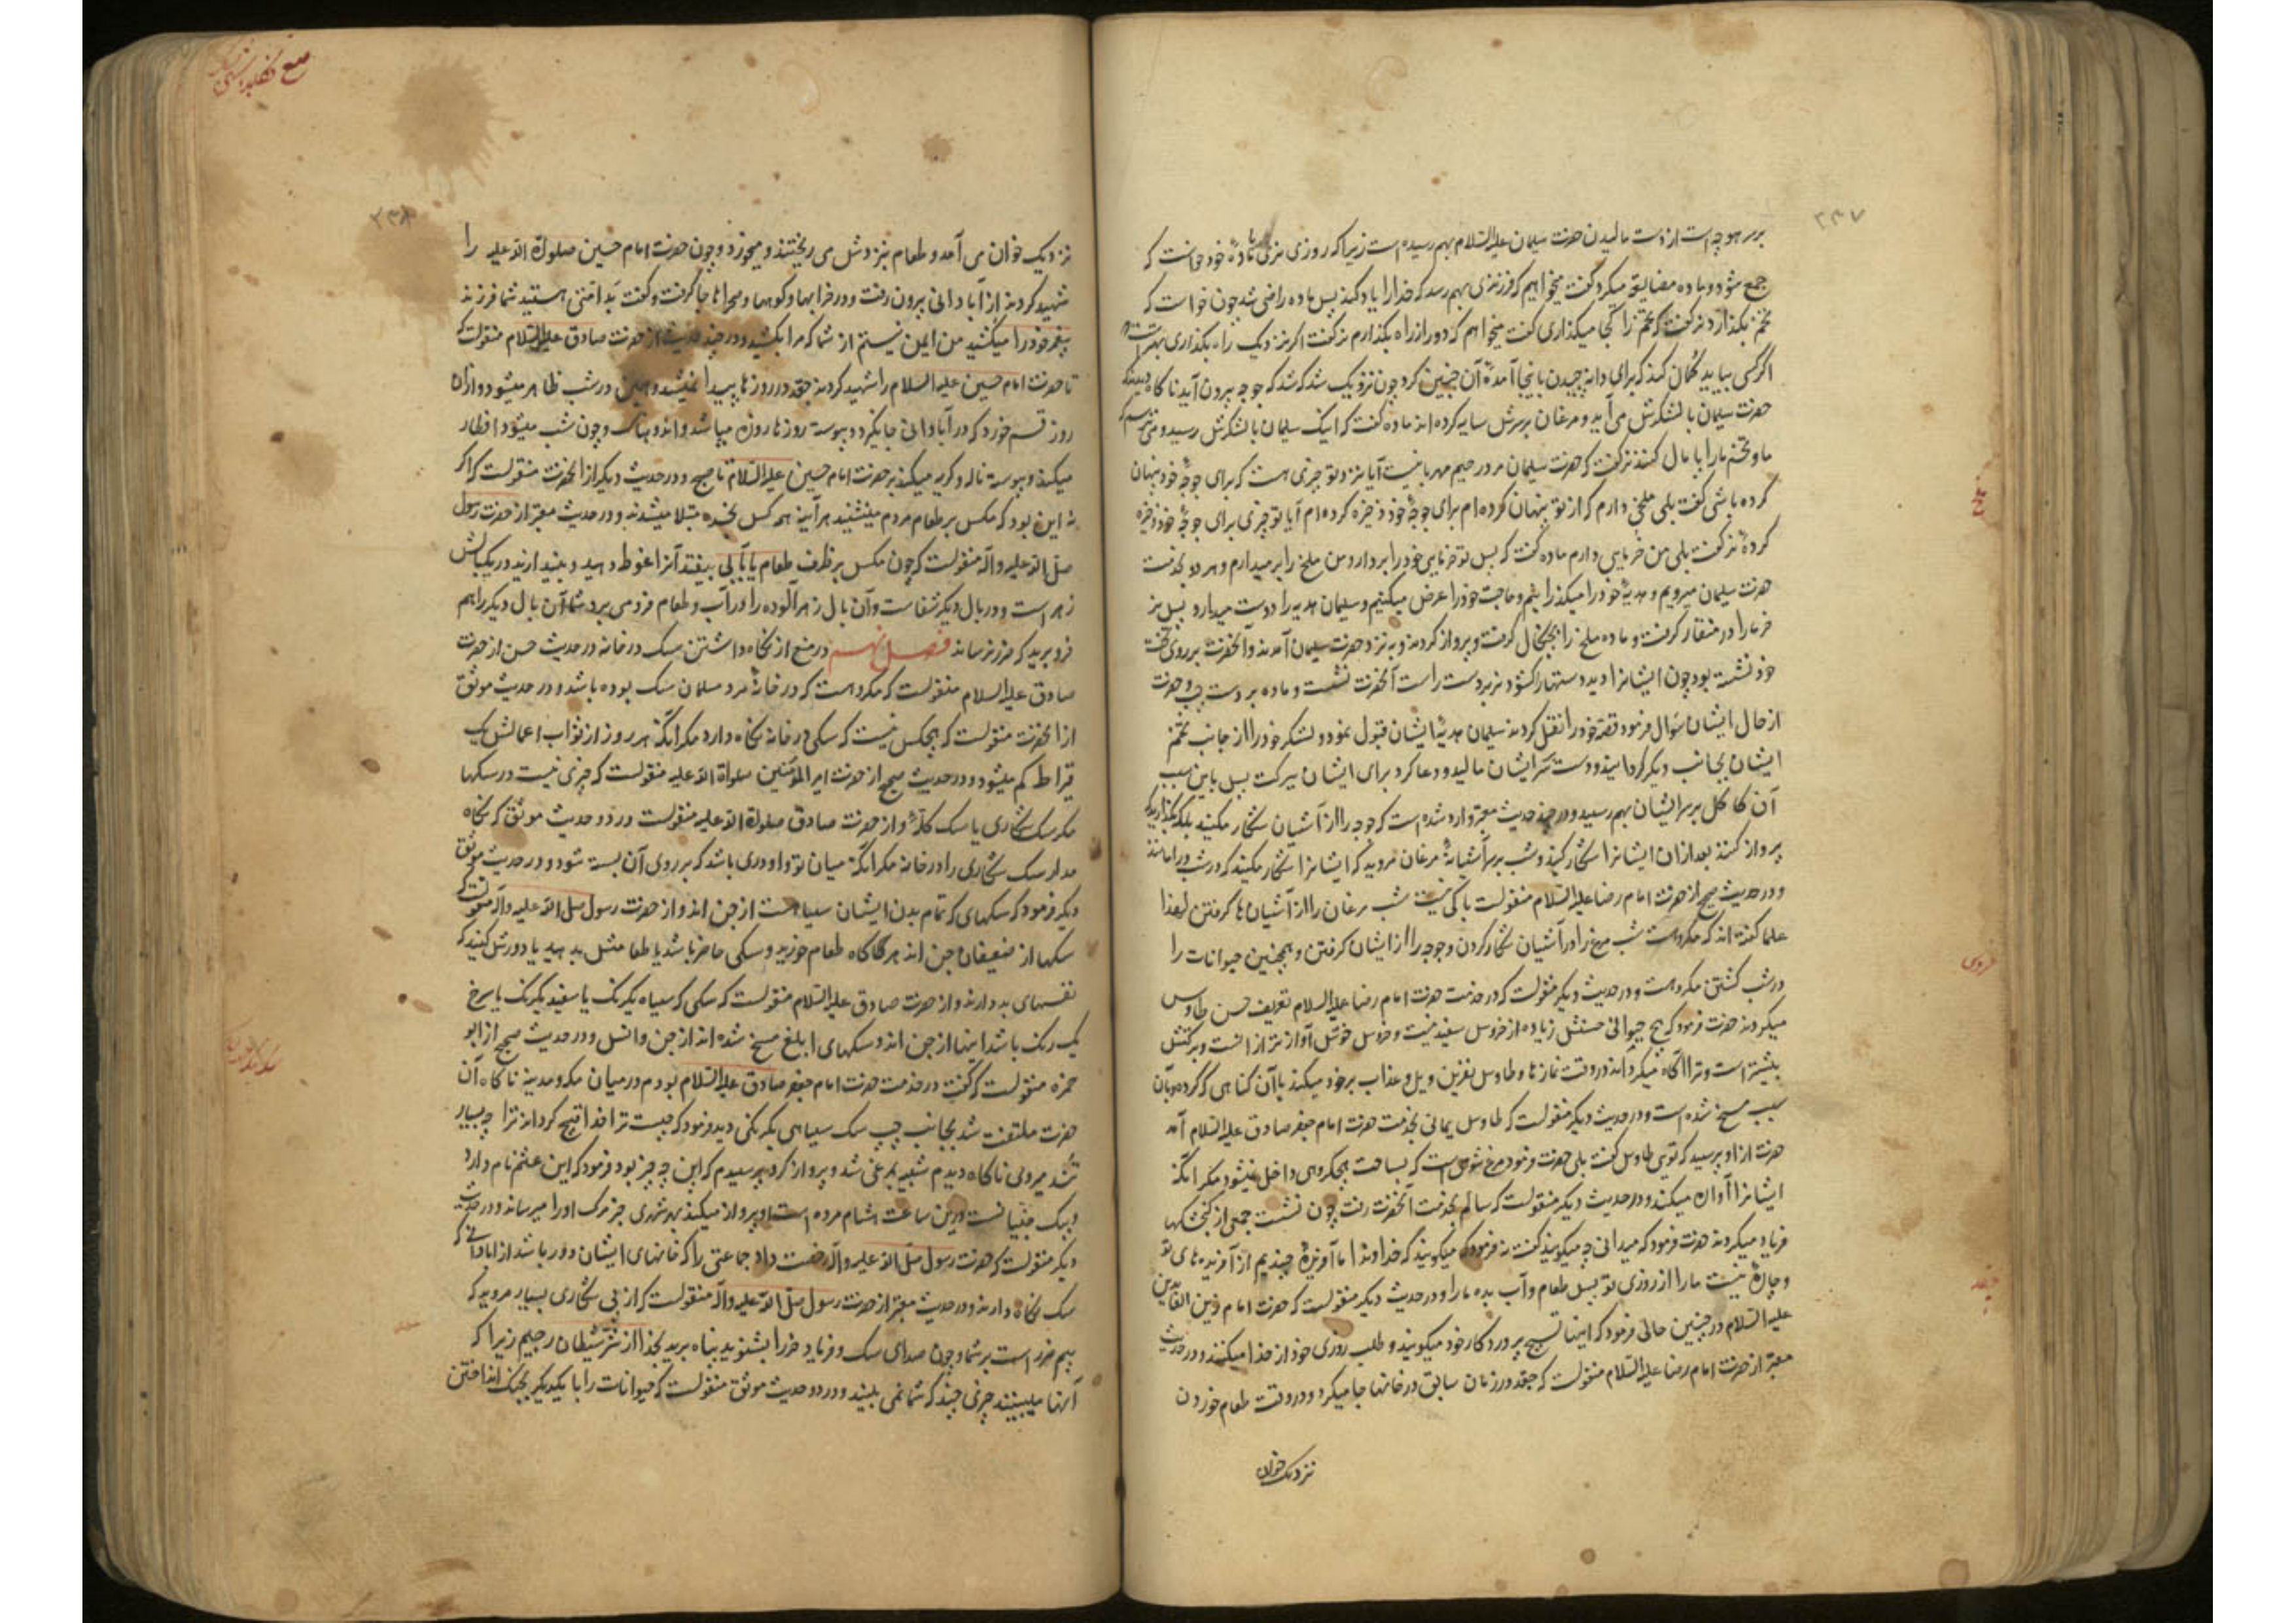 ۲۳۷
بر سر هوجه است از دست مالیدن حضرت سلیمان علیه السلام بهم رسیده است زیرا که روزی نری با مادهٔ خود خواست که
جمع شود و ماده مضایقه میکرد گفت میخواهم که فرزندی بهم رسد که خدا را یاد کند پس ماده راضی شد چون خواست که
تخم بگذارد نر گفت که تخم را کجا میگذاری گفت میخواهم که دور از راه بگذارم نر گفت اگر نزدیک راه بگذاری بهتر است و
اگر کسی بیاید گمان کند که برای دانه چیدن باینجا آمدهٔ آن چنین کرد چون نزدیک شد که جوجه بیرون آید ناگاه دیدند که
حضرت سلیمان با لشکرش می آید و مرغان بر سرش سایه کرده اند ماده گفت که اینک سلیمان با لشکرش رسید و می ترسم که
ما و تخم ما را پامال کنند نر گفت که حضرت سلیمان مرد رحیم مهربانیست آیا نزد تو چیزی هست که برای جوجهٔ خود پنهان
کرده باشی گفت بلی ملخی دارم که از تو پنهان کرده ام برای جوجهٔ خود ذخیره کرده ام آیا تو چیزی برای جوجهٔ خود ذخیره
کردهٔ نر گفت بلی من خرمایی دارم ماده گفت که پس تو خرمای خود را بردار و من ملخ را برمیدارم و هر دو بخدمت
حضرت سلیمان میرویم و هدیهٔ خود را میگذرانیم و حاجت خود را عرض میکنیم و سلیمان هدیه را دوست میدارد پس نر
خرما را در منقار گرفت و ماده ملخ را بچنگال گرفت و پرواز کردند و به نزد حضرت سلیمان آمدند و آنحضرت بر روی تخت
خود نشسته بود چون ایشانرا دید دستها را گشود نر بر دست راست آنحضرت نشست و ماده بر دست چپ و حضرت
از حال ایشان سؤال فرمود قصهٔ خود را نقل کردند سلیمان هدیهٔ ایشان قبول نمود و لشکر خود را از جانب تخم
ایشان بجانب دیگر گردانید و دست بر سر ایشان مالید و دعا کرد برای ایشان ببرکت پس باین سبب
آن کاکل بر سر ایشان بهم رسید و در چند حدیث معتبر وارد شده است که جوجه را از آشیان شکار مکنید بلکه بگذارید که
پرواز کنند بعد از آن ایشانرا شکار کنید و شب بر سر آشیانهٔ مرغان مروید که ایشانرا شکار مکنید که در شب در امانند
و در حدیث صحیح از حضرت امام رضا علیه السلام منقولست باکی نیست شب مرغان را از آشیان ها گرفتن لهذا
علما گفته اند که مکروهست شب مرغ را در آشیان شکار کردن و جوجه را از ایشان گرفتن و همچنین حیوانات را
در شب کشتن مکروهست و در حدیث دیگر منقولست که در خدمت حضرت امام رضا علیه السلام تعریف حسن طاوس
میکردند حضرت فرمود که هیچ حیوانی حسنش زیاده از خروس سفید نیست و خروس خوش آواز تر از اوست و برکتش
بیشتر است و ترا آگاه میگرداند در وقت نمازها و طاوس نفرین ویل و عذاب برخود میکند با آن گناهی که کرده و بآن
سبب مسخ شده است و در حدیث دیگر منقولست که طاوس یمانی بخدمت حضرت امام جعفر صادق علیه السلام آمد
حضرت از او پرسید که توئی طاوس گفت بلی حضرت فرمود مرغ شومیست که بساحت هیچ گروهی داخل نمیشود مگر آنکه
ایشانرا آوازه میکند و در حدیث دیگر منقولست که سالم بخدمت آنحضرت رفت چون نشست جمعی از گنجشکها
فریاد میکردند حضرت فرمود که میدانی چه میگویند گفت نه فرمود که میگویند که خداوندا ما آفریدهٔ چندیم از آفریده های تو
و چارهٔ نیست ما را از روزی تو پس طعام و آب بده ما را و در حدیث دیگر منقولست که حضرت امام زین العابدین
علیه السلام در چنین حالی فرمود که اینها تسبیح پروردگار خود میگویند و طلب روزی خود از خدا میکنند و در حدیث
معتبر از حضرت امام رضا علیه السلام منقولست که جغد در زمان سابق در خانها جا میکرد و در وقت طعام خوردن
نزدیک خوان
ملخ
خروس
جغد
۲۳۸
نزدیک خوان می آمد و طعام بنزدش می ریختند و میخورد و چون حضرت امام حسین صلواة الله علیه را
شهید کردند از آبادانی بیرون رفت و در خرابها و کوهها و صحراها جا گرفت و گفت بد امتی هستید شما فرزند
پیغمبر خود را میکشید من ایمن نیستم از شما که مرا بکشید و در چند حدیث از حضرت صادق علیه السلام منقولست که
تا حضرت امام حسین علیه السلام را شهید کردند جغد در روزها پیدا نمیشد و همین در شب ظاهر میشود و از آن
روز قسم خورد که در آبادانی جا نگیرد و پیوسته روزها روزه میباشد و اندوهناک و چون شب میشود افطار
میکند و پیوسته ناله و گریه میکند بر حضرت امام حسین علیه السلام تا صبح و در حدیث دیگر از آنحضرت منقولست که اگر
نه این بود که مگس بر طعام مردم مینشیند هر آینه همه کس بخوره مبتلا میشدند و در حدیث معتبر از حضرت رسول
صلی الله علیه و آله منقولست که چون مگس بر ظرف طعام یا آبی بیفتد آنرا غوطه دهید و بیندازید در یک بالش
زهر است و در بال دیگر شفاست و آن بال زهر آلوده را در آب و طعام فرو می برد شما آن بال دیگر را هم
فرو برید که ضرر نرساند فصل نهم در منع از نگاه داشتن سگ در خانه در حدیث حسن از حضرت
صادق علیه السلام منقولست که مکروهست که در خانهٔ مرد مسلمان سگ بوده باشد و در حدیث موثق
از آنحضرت منقولست که هیچکس نیست که سگی در خانه نگاه دارد مگر آنکه هر روز از ثواب اعمالش یک
قیراط کم میشود و در حدیث صحیح از حضرت امیر المؤمنین صلواة الله علیه منقولست که چیزی نیست در سگها
مگر سگ شکاری یا سگ گله و از حضرت صادق صلواة الله علیه منقولست در دو حدیث موثق که نگاه
مدار سگ شکاری را در خانه مگر آنکه میان تو و او دری باشد که بر روی آن بسته شود و در حدیث موثق
دیگر فرمود که سگهای که تمام بدن ایشان سیاهست از جن اند و از حضرت رسول صلی الله علیه و آله منقولست که
سگها از ضعیفان جن اند هرگاه طعام خورید و سگی حاضر باشد یا طعامش بدهید یا دورش کنید که
نفسهای بد دارند و از حضرت صادق علیه السلام منقولست که سگی که سیاه یکرنگ یا سفید یکرنگ یا سرخ
یک رنگ باشد اینها از جن اند و سگهای ابلق مسخ شده اند از جن و انس و در حدیث صحیح از ابو
حمزه منقولست که گفت در خدمت حضرت امام جعفر صادق علیه السلام بودم در میان مکه و مدینه ناگاه آن
حضرت ملتفت شد بجانب چپ سگ سیاهی یکرنگی دید فرمود که چیست ترا خدا قبیح گرداند ترا چه بسیار
تند میروی ناگاه دیدم شبیه بمرغی شد و پرواز کرد پرسیدم که این چه چیز بود فرمود که این عثم نام دارد
و پیک جنیانست و درین ساعت هشام مرده است او پرواز میکند بهر شهری خبر مرگ او را میرساند و در حدیث
دیگر منقولست که حضرت رسول صلی الله علیه و آله رخصت داد جماعتی را که خانهای ایشان دور باشد از آبادانی که
سگ نگاه دارند و در حدیث معتبر از حضرت رسول صلی الله علیه و آله منقولست که از پی شکاری بسیار مروید که
بیم ضرر است بر شما و چون صدای سگ و فریاد خر را بشنوید پناه برید بخدا از شر شیطان رجیم زیرا که
آنها میبینند چیزی چند که شما نمی بینید و در دو حدیث موثق منقولست که حیوانات را با یکدیگر بجنگ انداختن